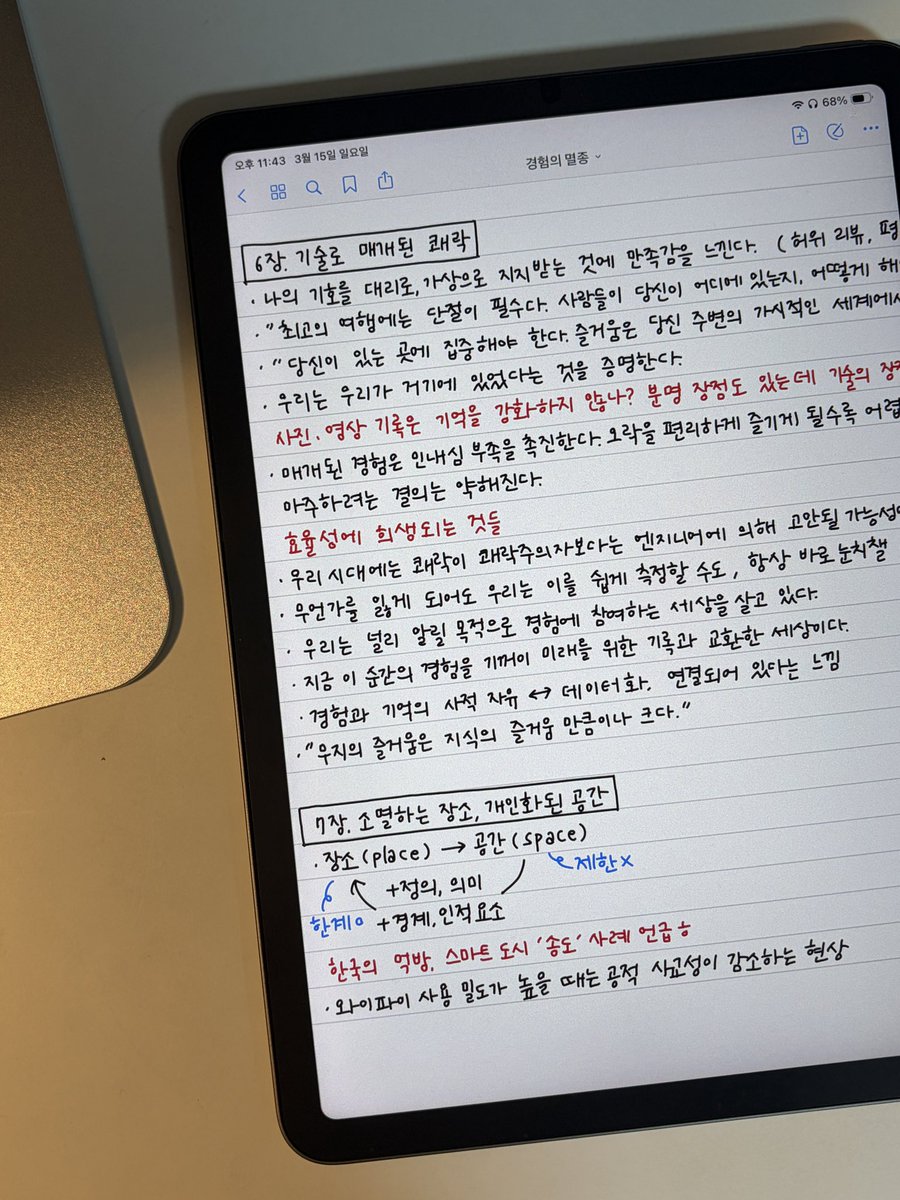 오후 11:43 3월 15일 일요일 68%
경험의 멸종
6장. 기술로 매개된 쾌락
· 나의 기호를 대리로, 가상으로 지지받는 것에 만족감을 느낀다. (허위 리뷰, 평
· "최고의 여행에는 단절이 필수다. 사람들이 당신이 어디에 있는지, 어떻게 해
· "당신이 있는 곳에 집중해야 한다. 즐거움은 당신 주변의 가시적인 세계에서
· 우리는 우리가 거기에 있었다는 것을 증명한다.
사진·영상 기록은 기억을 강화하지 않나? 분명 장점도 있는데 기술의 장
· 매개된 경험은 인내심 부족을 촉진한다. 오락을 편리하게 즐기게 될수록 어렵
마주하려는 결의는 약해진다.
효율성에 희생되는 것들
· 우리 시대에는 쾌락이 쾌락주의자보다는 엔지니어에 의해 고안될 가능성이
· 무언가를 잃게 되어도 우리는 이를 쉽게 측정할 수도, 항상 바로 눈치챌
· 우리는 널리 알릴 목적으로 경험에 참여하는 세상을 살고 있다.
· 지금 이 순간의 경험을 기꺼이 미래를 위한 기록과 교환한 세상이다.
· 경험과 기억의 사적 자유 ↔ 데이터화. 연결되어 있다는 느낌
· "무지의 즐거움은 지식의 즐거움 만큼이나 크다."
7장. 소멸하는 장소, 개인화된 공간
· 장소(place) → 공간(space)
제한x
+정의, 의미
한계o +경계, 인적요소
한국의 먹방, 스마트 도시 '송도' 사례 언급ㅎ
· 와이파이 사용 밀도가 높을 때는 공적 사교성이 감소하는 현상